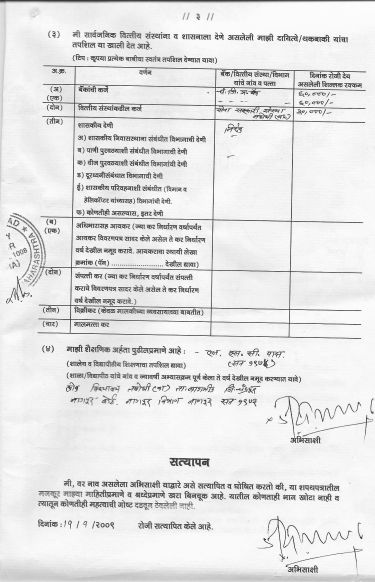 ।। ३ ।।
(३) मी सार्वजनिक वित्तीय संस्थांना व शासनाला देणे असलेली माझी दायित्वे/थकबाकी यांचा
तपशिल या खाली देत आहे.
(टिप: कृपया प्रत्येक बाबीचा स्वतंत्र तपशिल देण्यात यावा)
अ.क्र. वर्णन बँक/वित्तीय संस्था/विभाग यांचे नांव व पत्ता दिनांक रोजी देय असलेली शिल्लक रक्कम
(अ) बँकांची कर्ज ६०,०००/-
(एक) ६०,०००/-
(दोन) वित्तीय संस्थांकडील कर्ज ३०,०००/-
(तीन) शासकीय देणी निरंक
अ) शासकीय निवासस्थाना संबंधीत विभागाची देणी
ब) पाणी पुरवठ्याशी संबंधीत विभागाची देणी
क) वीज पुरवठ्याशी संबंधीत विभागांची देणी
ड) दूरध्वनीसंबंधात विभागाची देणी
ई) शासकीय परिवहनाशी संबंधीत (विमान व
हेलिकॉप्टर यांच्यासह) विभागाची देणी.
फ) कोणतीही असल्यास, इतर देणी
(ब) अधिभारासह आयकर (ज्या कर निर्धारण वर्षापर्यंत
(एक) आयकर विवरणपत्र सादर केले असेल ते कर निर्धारण
वर्ष देखील नमूद करावे. आयकराचा स्थायी लेखा
क्रमांक (पॅन) .................. देखील द्यावा)
(दोन) संपत्ती कर (ज्या कर निर्धारण वर्षापर्यंत संपत्ती
कराचे विवरणपत्र सादर केले असेल ते कर निर्धारण
वर्ष देखील नमूद करावे.)
(तीन) विक्रीकर (केवळ मालकीच्या व्यवसायाच्या बाबतीत)
(चार) मालमत्ता कर
(४) माझी शैक्षणिक अर्हता पुढीलप्रमाणे आहे :- एस. एस. सी. पास
(शालेय व विद्यापीठीय शिक्षणाचा तपशिल द्यावा)
(शाळा/विद्यापीठ यांचे नांव व ज्यावर्षी अभ्यासक्रम पूर्ण केला ते वर्ष देखील नमूद करण्यात यावे)
नागपूर बोर्ड. नागपूर विभाग नागपूर सन १९७२
अभिसाक्षी
सत्यापन
मी, वर नाव असलेला अभिसाक्षी याद्वारे असे सत्यापित व घोषित करतो की, या शपथपत्रातील
मजकूर माझ्या माहितीप्रमाणे व श्रध्देप्रमाणे खरा बिनचूक आहे. यातील कोणताही भाग खोटा नाही व
त्यातून कोणतीही महत्वाची गोष्ट दडवून ठेवलेली नाही.
दिनांक : १९/९/२००९ रोजी सत्यापित केले आहे.
अभिसाक्षी